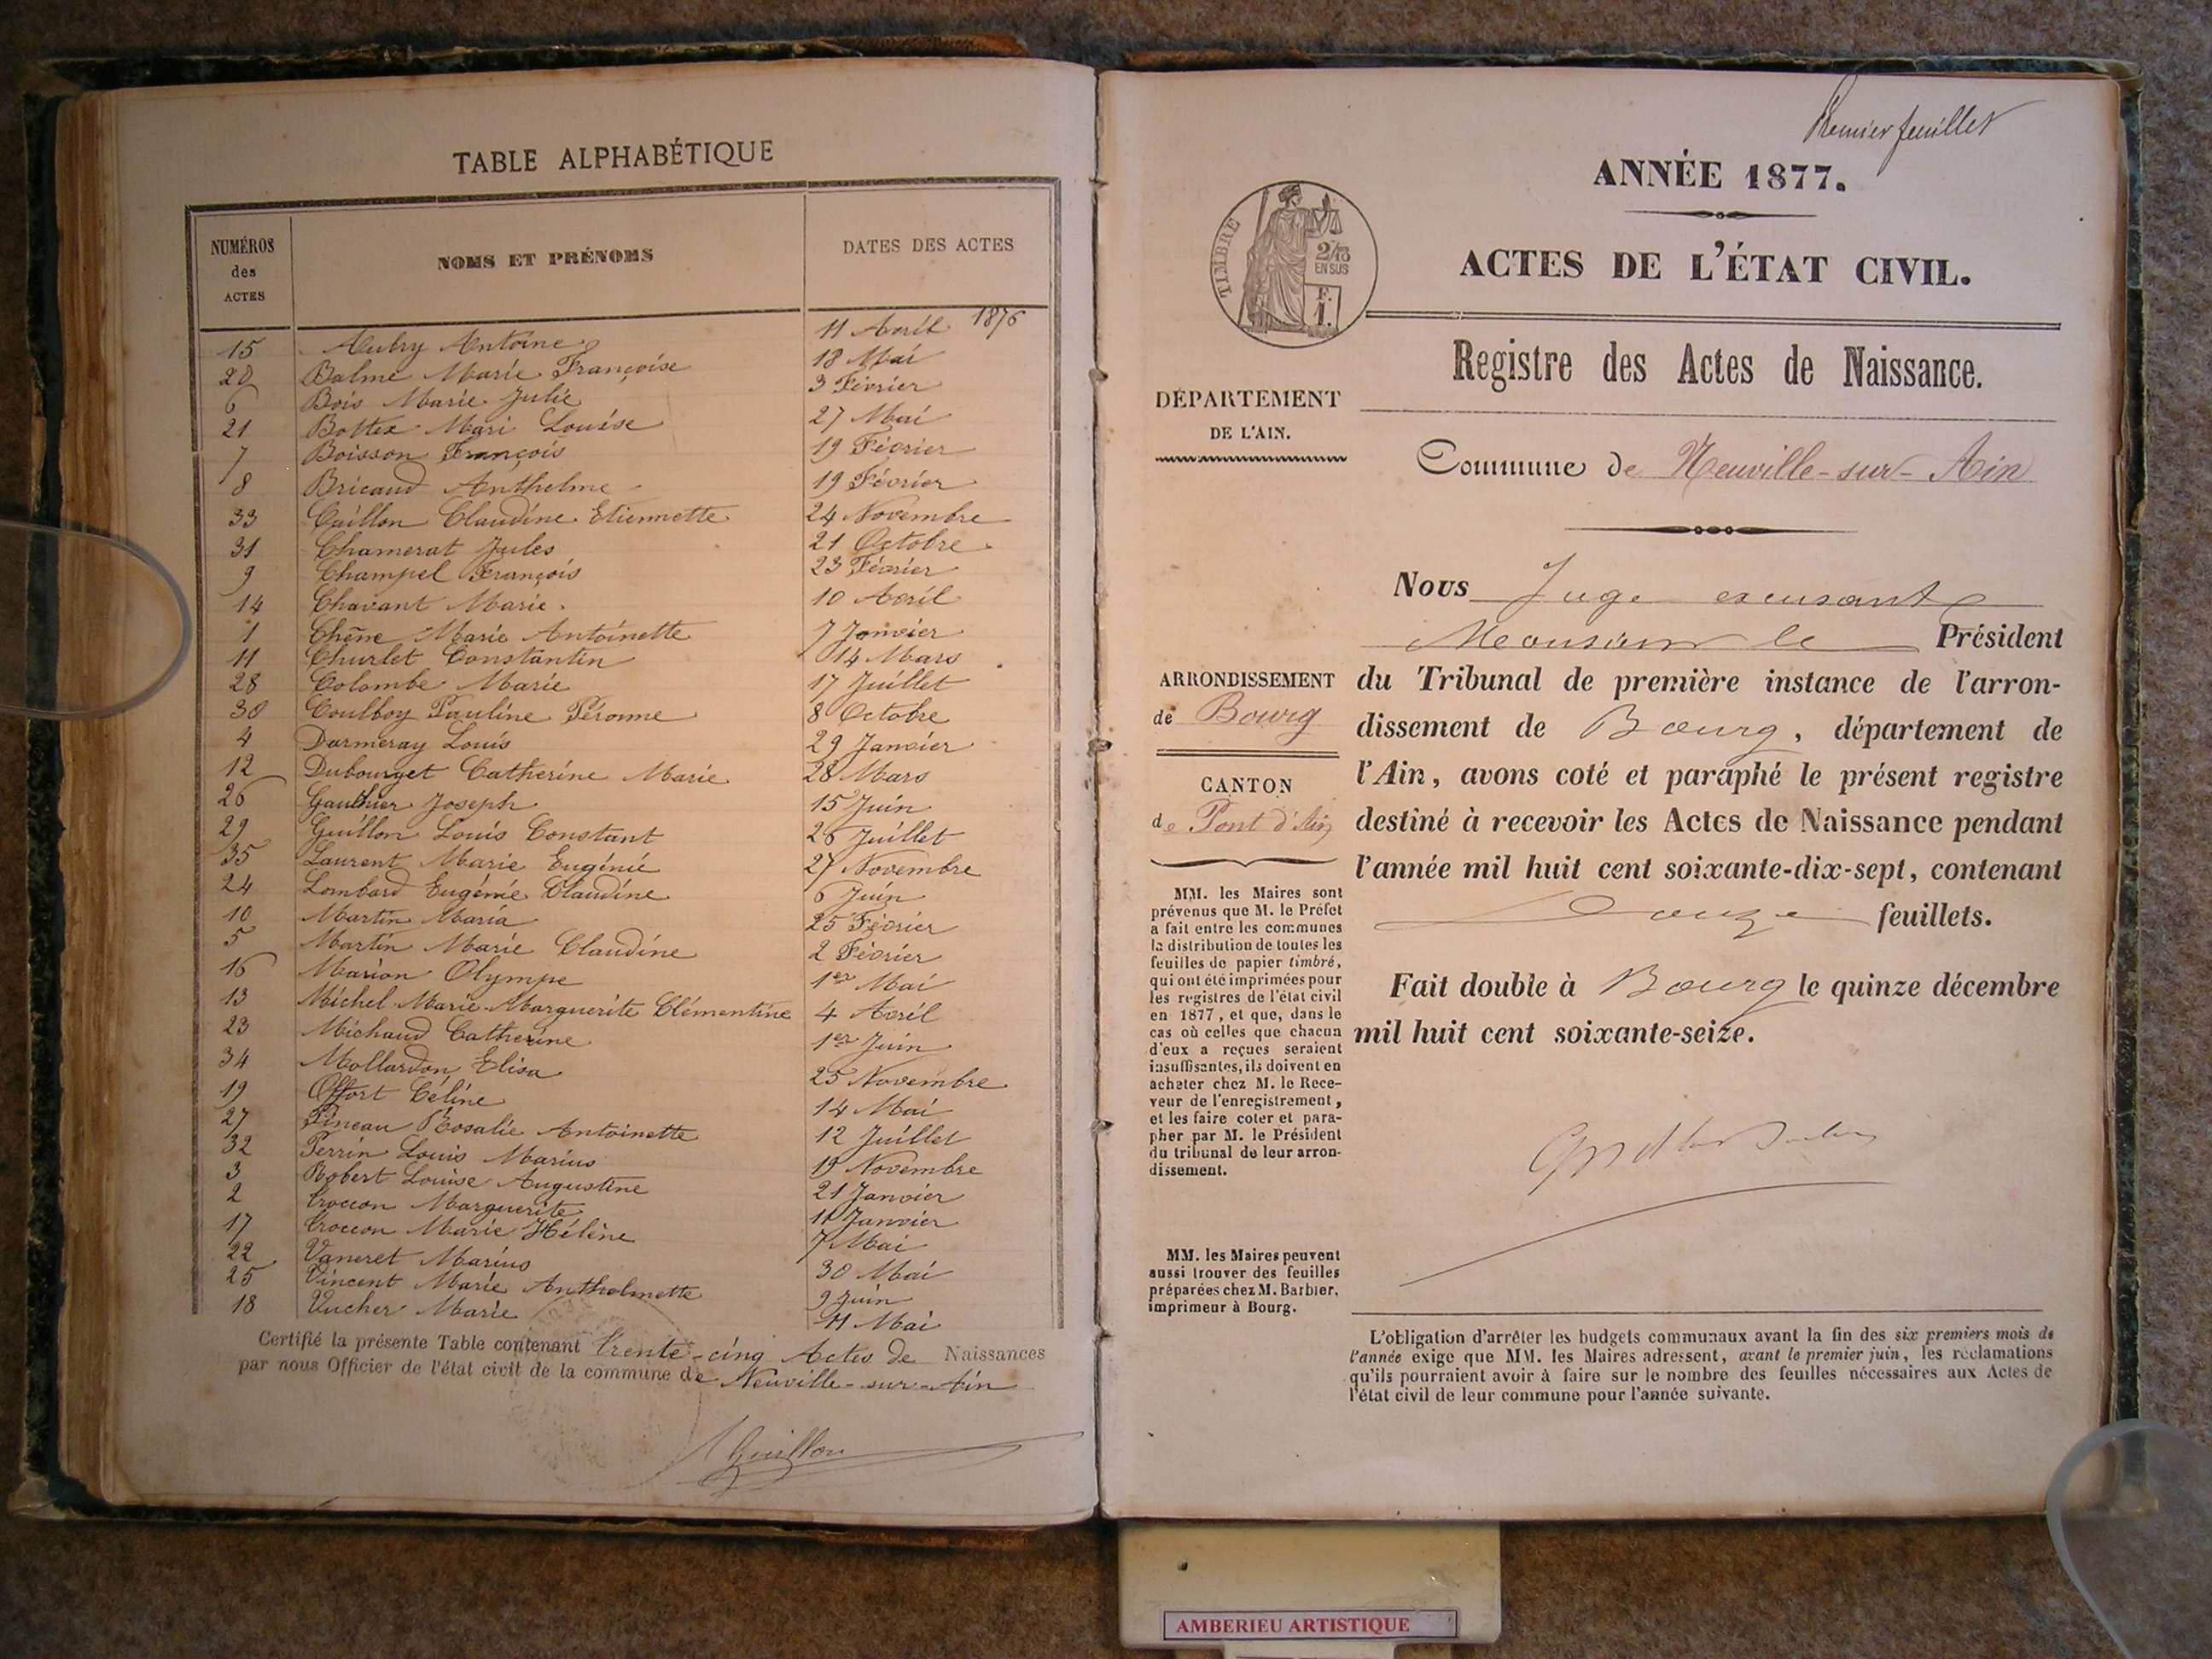 TABLE ALPHABÉTIQUE
NUMÉROS
des
ACTES
NOMS ET PRÉNOMS
DATES DES ACTES
15 Aubry Antoine 11 Avril 1876
20 Balme Marie Françoise 18 Mai
6 Bois Marie Julie 3 Février
21 Bottex Mari Louise 27 Mai
7 Boisson François 19 Février
8 Bricaud Anthelme 19 Février
33 Caillon Claudine Etiennette 24 Novembre
31 Chamerat Jules 21 Octobre
9 Champel François 23 Février
14 Chavant Marie 10 Avril
1 Chêne Marie Antoinette 7 Janvier
11 Churlet Constantin 14 Mars
28 Colombe Marie 17 Juillet
30 Coulboy Pauline Péronne 8 Octobre
4 Darmeray Louis 29 Janvier
12 Dubourget Catherine Marie 28 Mars
26 Gauthier Joseph 15 Juin
29 Guillon Louis Constant 26 Juillet
35 Laurent Marie Eugénie 27 Novembre
24 Lombard Eugénie Claudine 6 Juin
10 Martin Maria 25 Février
5 Martin Marie Claudine 2 Février
16 Marion Olympe 1er Mai
13 Michel Marie Marguerite Clémentine 4 Avril
23 Michaud Catherine 1er Juin
34 Mollardon Elisa 25 Novembre
19 Offort Céline 14 Mai
27 Pineau Rosalie Antoinette 12 Juillet
32 Perrin Louis Marius 19 Novembre
3 Robert Louise Augustine 21 Janvier
2 Troccon Marguerite 11 Janvier
17 Troccon Marie Hélène 7 Mai
22 Vaneret Marius 30 Mai
25 Vincent Marie Anthelmette 9 Juin
18 Vucher Marie 11 Mai
Certifié la présente Table contenant Trente-cinq Actes de Naissances
par nous Officier de l'état civil de la commune de Neuville-sur-Ain
Guillon
Premier feuillet
ANNÉE 1877.
TIMBRE
2/10
EN SUS
F.
1.
ACTES DE L'ÉTAT CIVIL.
Registre des Actes de Naissance.
DÉPARTEMENT
DE L'AIN.
Commune de Neuville-sur-Ain
Nous Juge excusant
Monsieur le Président
du Tribunal de première instance de l'arron-
dissement de Bourg, département de
l'Ain, avons coté et paraphé le présent registre
destiné à recevoir les Actes de Naissance pendant
l'année mil huit cent soixante-dix-sept, contenant
Douze feuillets.
Fait double à Bourg le quinze décembre
mil huit cent soixante-seize.
ARRONDISSEMENT
de Bourg
CANTON
de Pont d'Ain
MM. les Maires sont
prévenus que M. le Préfet
a fait entre les communes
la distribution de toutes les
feuilles de papier timbré,
qui ont été imprimées pour
les registres de l'état civil
en 1877, et que, dans le
cas où celles que chacun
d'eux a reçues seraient
insuffisantes, ils doivent en
acheter chez M. le Rece-
veur de l'enregistrement,
et les faire coter et para-
pher par M. le Président
du tribunal de leur arron-
dissement.
MM. les Maires peuvent
aussi trouver des feuilles
préparées chez M. Barbier,
imprimeur à Bourg.
L'obligation d'arrêter les budgets communaux avant la fin des six premiers mois de
l'année exige que MM. les Maires adressent, avant le premier juin, les réclamations
qu'ils pourraient avoir à faire sur le nombre des feuilles nécessaires aux Actes de
l'état civil de leur commune pour l'année suivante.
AMBERIEU ARTISTIQUE